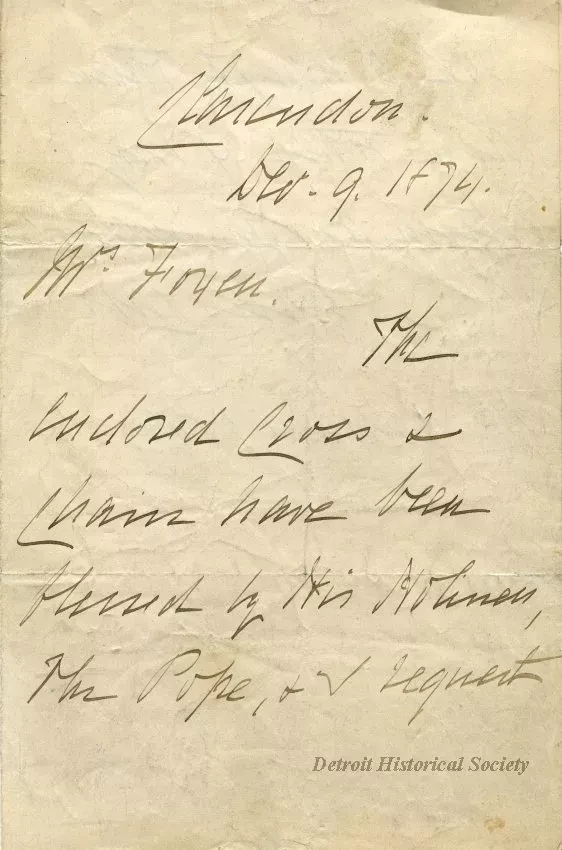 Clarendon.
Dec. 9. 1874.
Mrs
The
enclosed Cross &
Chain have been
blessed by His Holiness,
The Pope, & I request
Detroit Historical Society